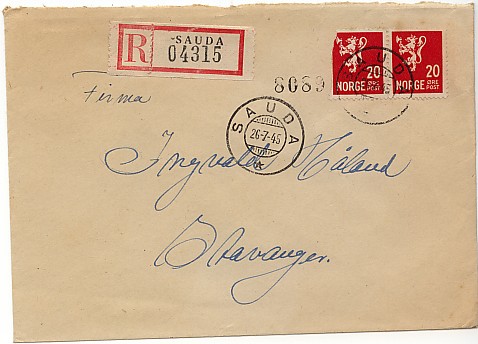 R -SAUDA
04315
8089
20 20
NORGE ØRE POST NORGE ØRE POST
SAUDA
SAUDA
26-7-45
Firma
Ingvald Håland
Stavanger.